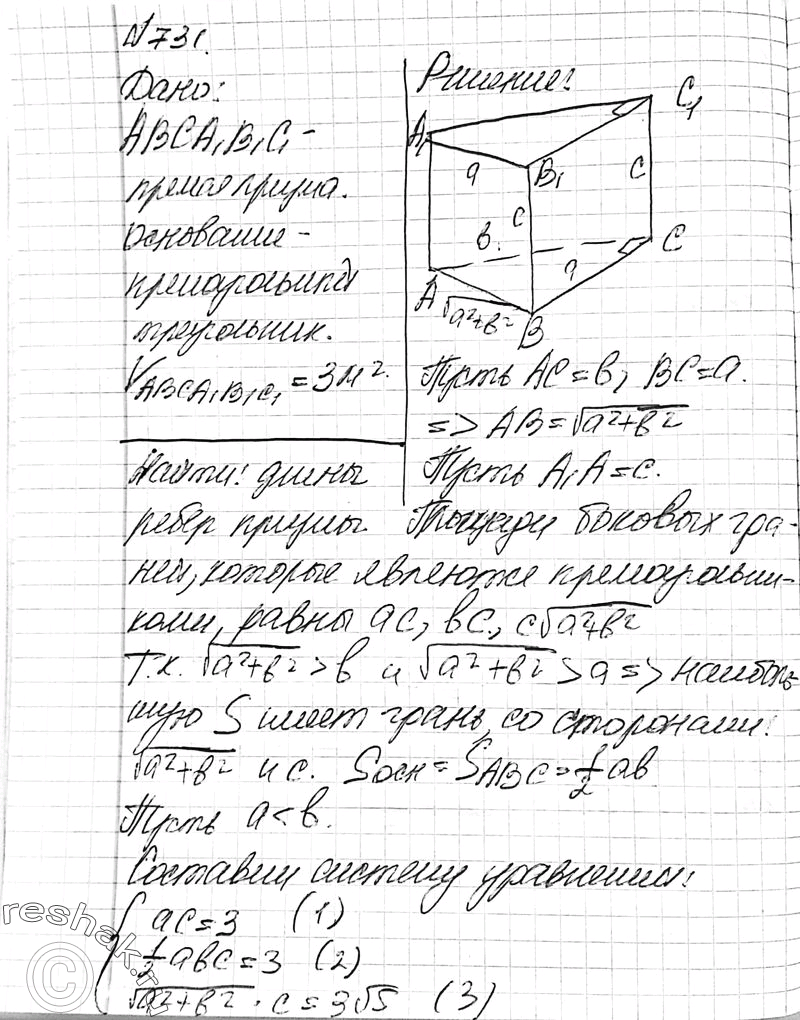 №731.
Дано:
ABCA₁B₁C₁ -
прямая призма.
Основание -
прямоугольный
треугольник.
V_{ABCA₁B₁C₁} = 3м².
Решение:
A₁
C₁
B₁
a
c
c
в.
a
A
C
B
√(a²+в²)
Пусть AC = в, BC = a.
=> AB = √(a²+в²)
Пусть A₁A = c.
Найти: длины
ребер призмы.
Площади боковых гра-
ней, которые являются прямоугольни-
ками, равны ac, вc, c√(a²+в²)
Т.к. √(a²+в²) > в и √(a²+в²) > a => наиболь-
шую S имеет грань, со сторонами:
√(a²+в²) и c. Sосн = S_{ABC} = ½ aв
Пусть a < в.
Составим систему уравнения:
{ ac = 3 (1)
½ aвc = 3 (2)
√(a²+в²) · c = 3√5 (3)
reshak.ru
©